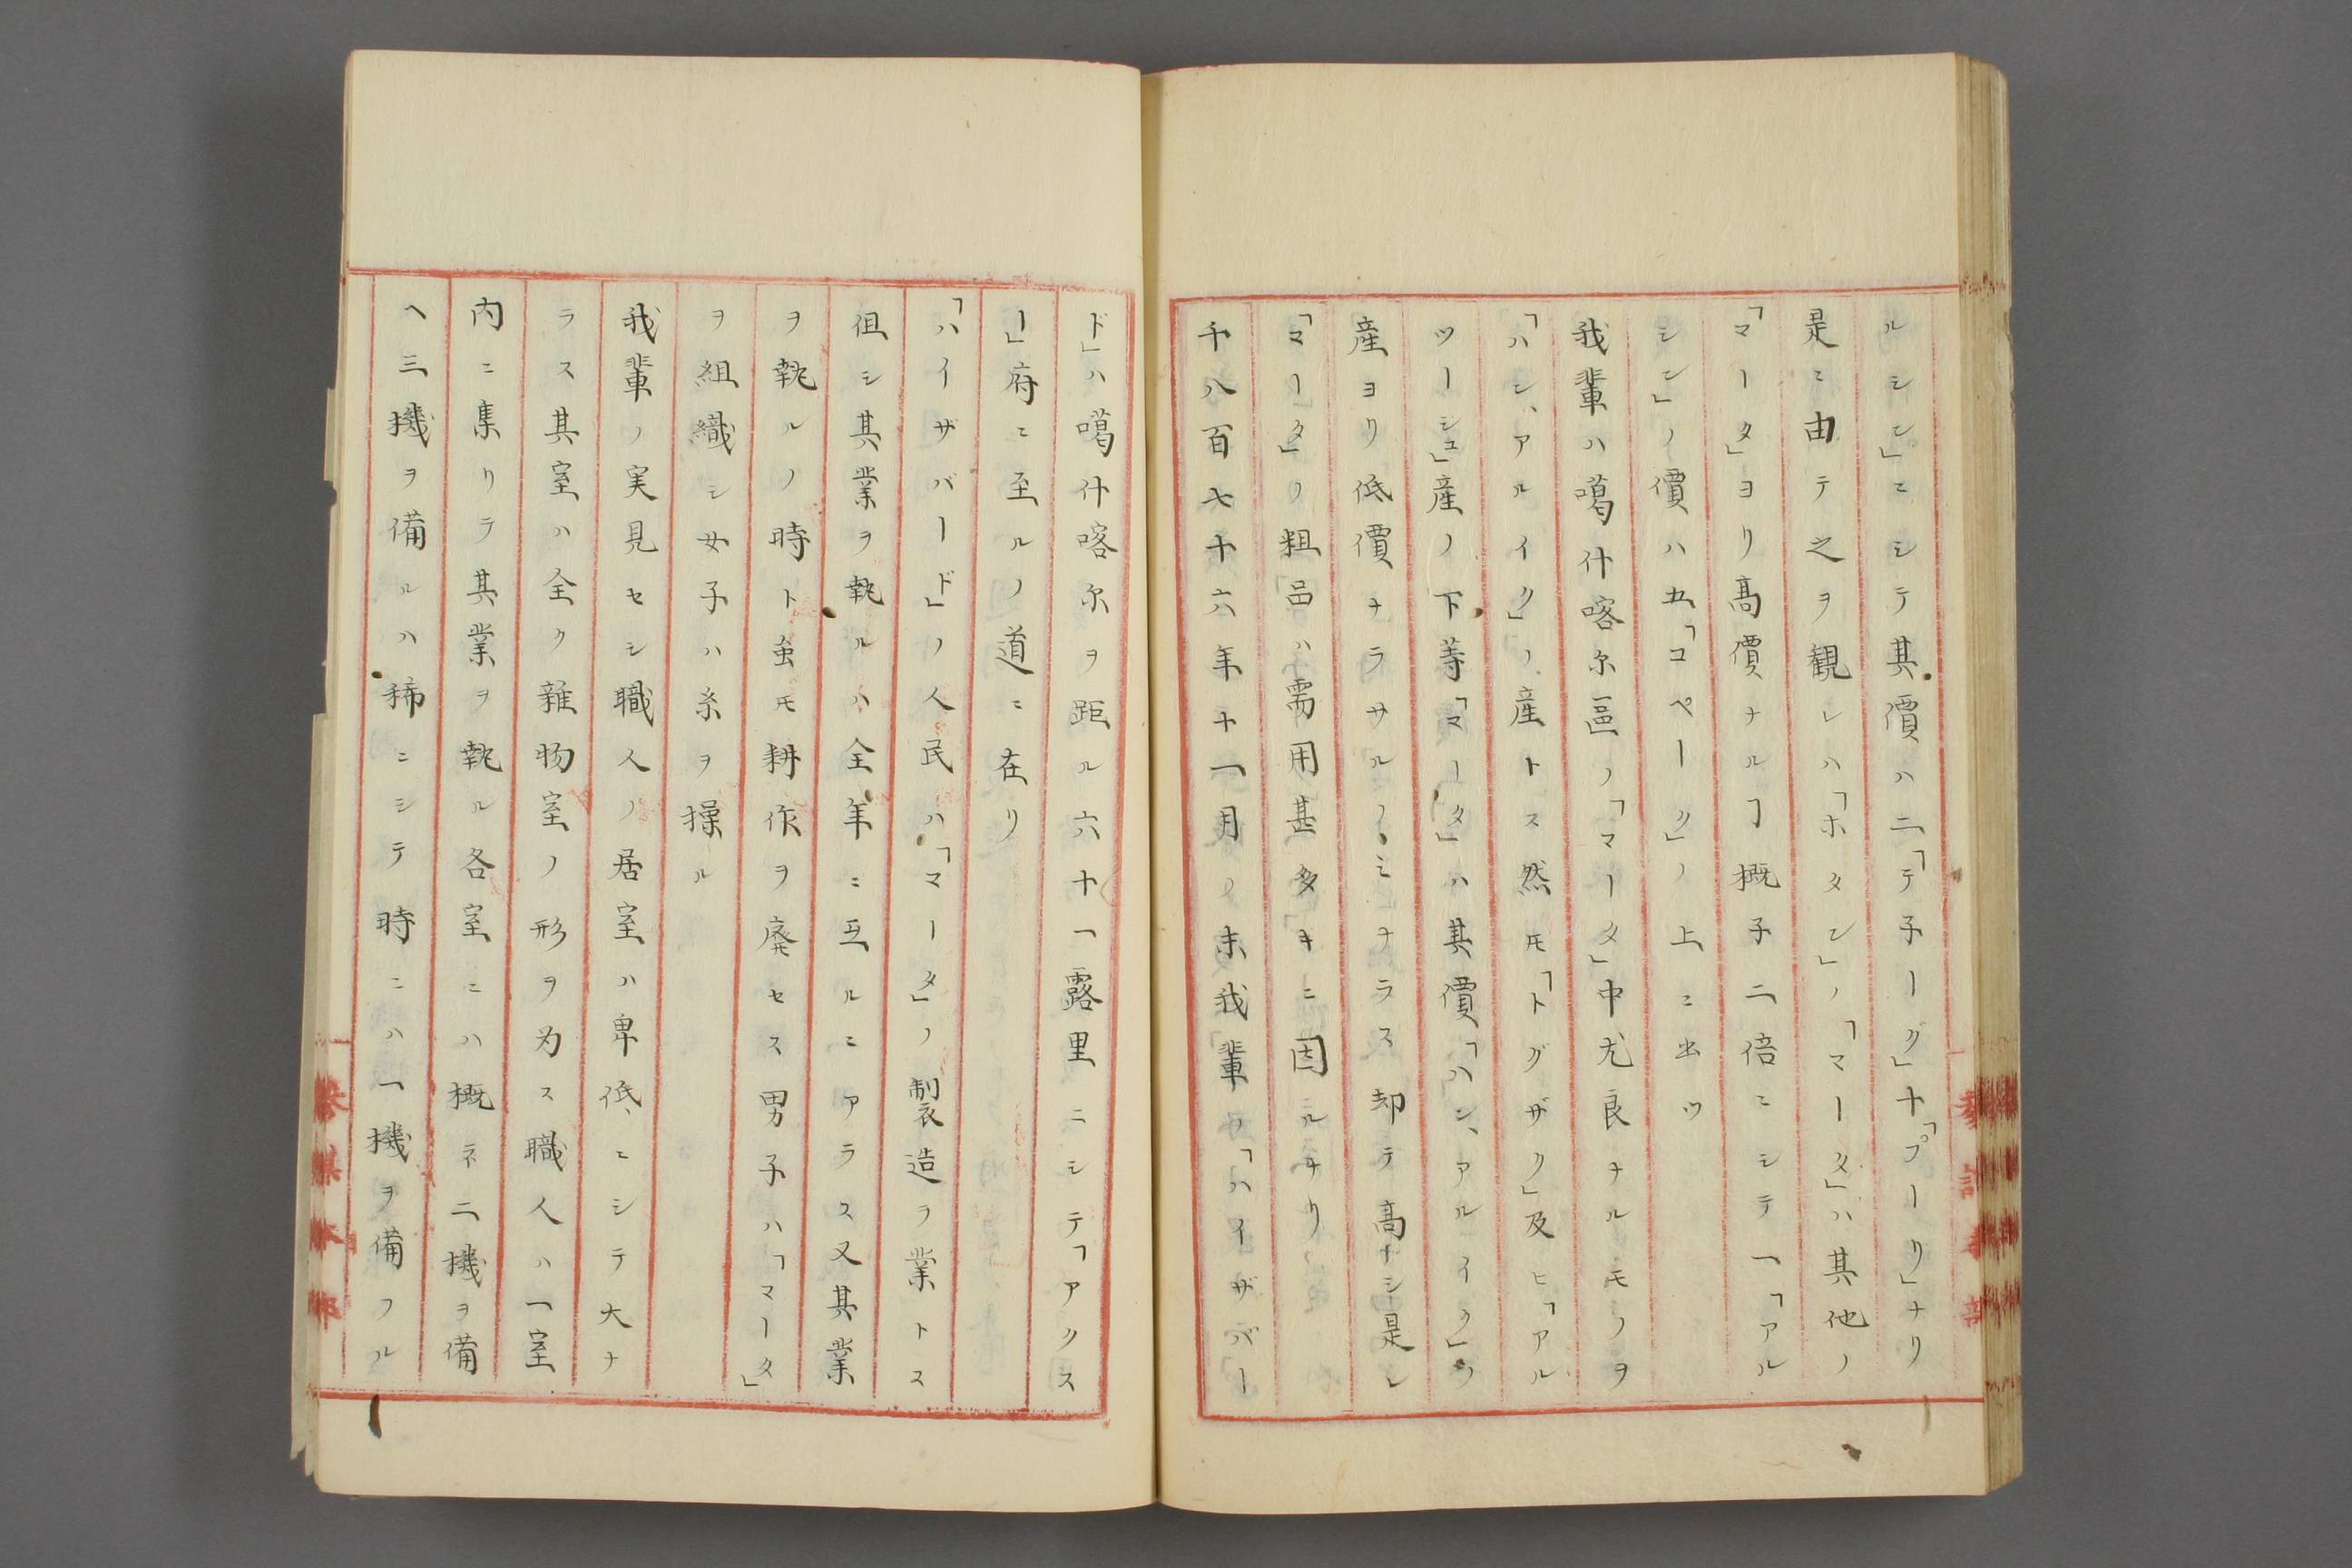 ルシン」ニシテ其價ハ二「テ子ーグ」十「プーリ」ナリ
是ニ由テ之ヲ観レハ「ホタン」ノ「マータ」ハ其他ノ
「マータ」ヨリ髙價ナルヿ概子二倍ニシテ一「アル
シン」ノ價ハ五「コペーク」ノ上ニ出ツ
我輩ハ噶什喀尓區ノ「マータ」中尤良ナルモノヲ
「ハン、アルイク」ノ産トス然モ「トグザク」及ヒ「アル
ツーシュ」産ノ下等「マータ」ハ其價「ハン、アルイク」ノ
産ヨリ低價ナラサルノミナラス却テ髙ナシ是レ
「マータ」ノ粗品ハ需用甚タ多キニ因ルナリ
千八百七十六年十一月ノ末我輩ノ「ハイザバー
ド」ハ噶什喀尓ヲ距ル六十一露里ニシテ「アクス
ー」府ニ至ルノ道ニ在リ
「ハイザバード」ノ人民ハ「マータ」ノ製造ヲ業トス
但シ其業ヲ執ルハ全年ニ亙ルニアラス又其業
ヲ執ルノ時ト虽モ耕作ヲ廃セス男子ハ「マータ」
ヲ組織シ女子ハ糸ヲ操ル
我輩ノ実見セシ職人ノ居室ハ卑低ニシテ大ナ
ラス其室ハ全ク雜物室ノ形ヲ为ス職人ハ一室
内ニ集リテ其業ヲ執ル各室ニハ概ネ二機ヲ備
ヘ三機ヲ備ルハ稀ニシテ時ニハ一機ヲ備フル
參謀本部